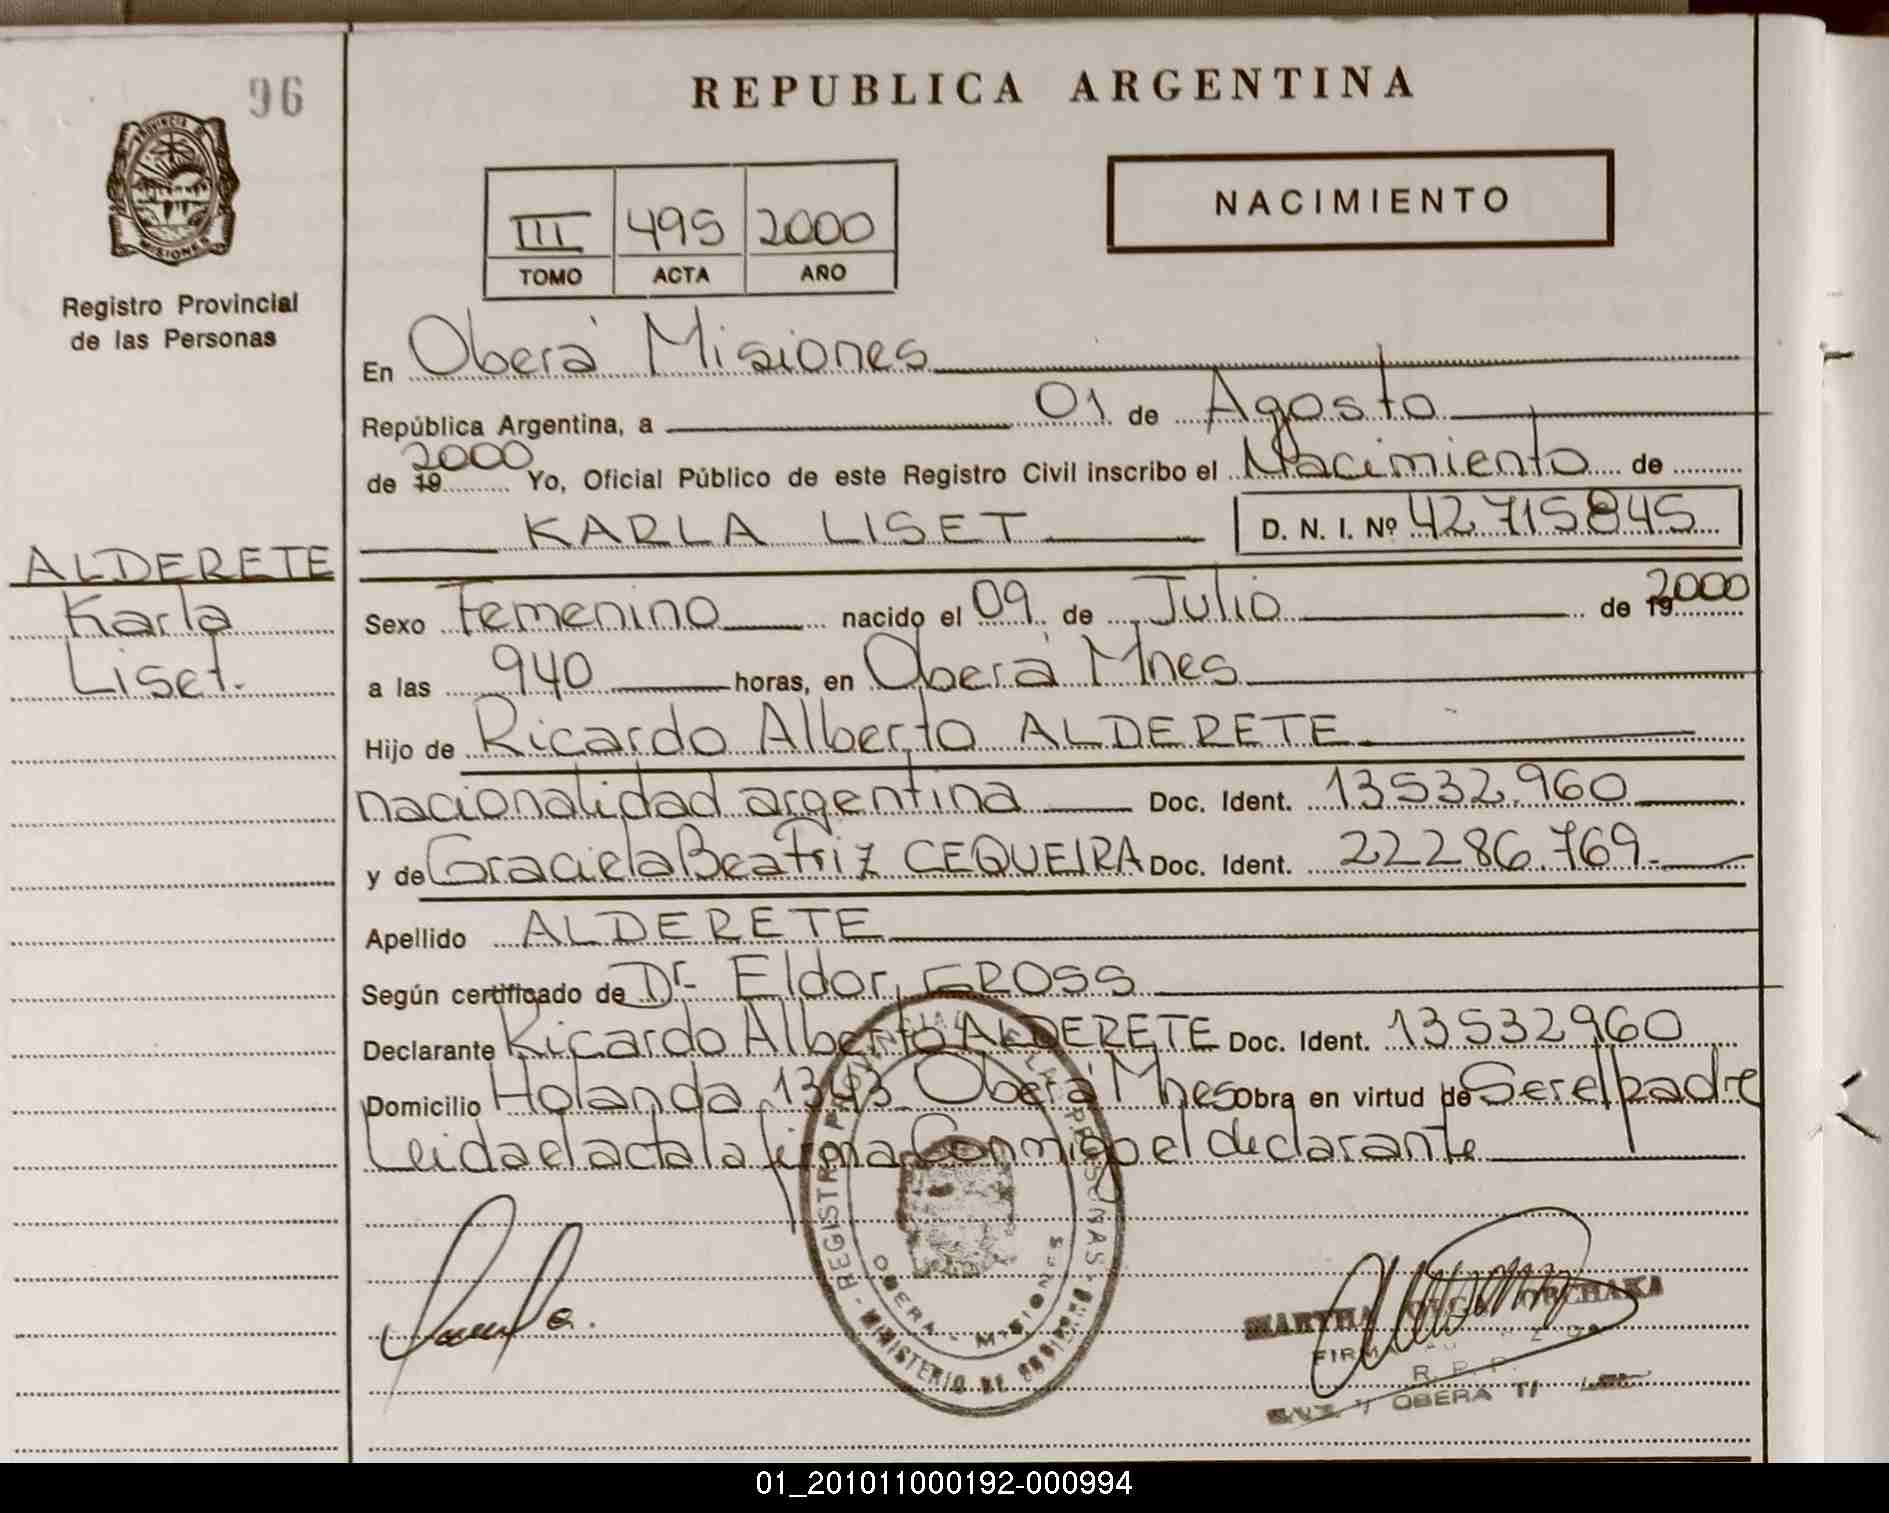 96
REPUBLICA ARGENTINA
PROVINCIA DE
MISIONES
Registro Provincial
de las Personas
NACIMIENTO
III 495 2000
TOMO ACTA AÑO
En Oberá Misiones
República Argentina, a 01 de Agosto
de 19 2000 Yo, Oficial Público de este Registro Civil inscribo el Nacimiento de
KARLA LISET D. N. I. Nº 42.715.845
ALDERETE
Karla
Liset.
Sexo Femenino nacido el 09 de Julio de 19 2000
a las 940 horas, en Oberá Mnes
Hijo de Ricardo Alberto ALDERETE
nacionalidad argentina Doc. Ident. 13532.960
y de Graciela Beatriz CEQUEIRA Doc. Ident. 22286.769
Apellido ALDERETE
Según certificado de Dr. Eldor GROSS
Declarante Ricardo Alberto ALDERETE Doc. Ident. 13532960
Domicilio Holanda 1343 Oberá Mnes Obra en virtud de Ser el padre
Leida el acta la firma Conmigo el declarante
REGISTRO PROVINCIAL DE LAS PERSONAS
OBERA - MISIONES
MINISTERIO DE
MARTHA OLGA
FIRMA
R. P. P.
OBERA
01_201011000192-000994